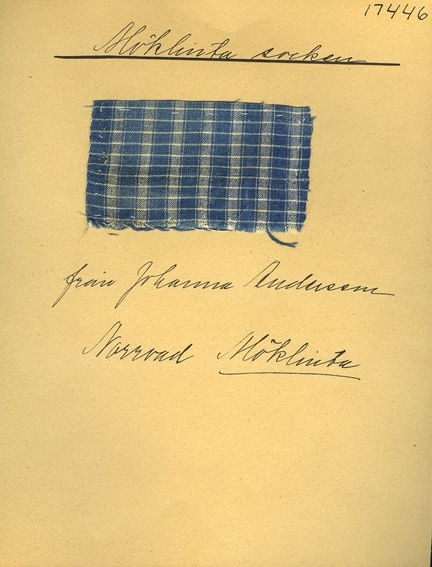 17446
Möklinta socken
från Johanna Andersson
Norrvad Möklinta